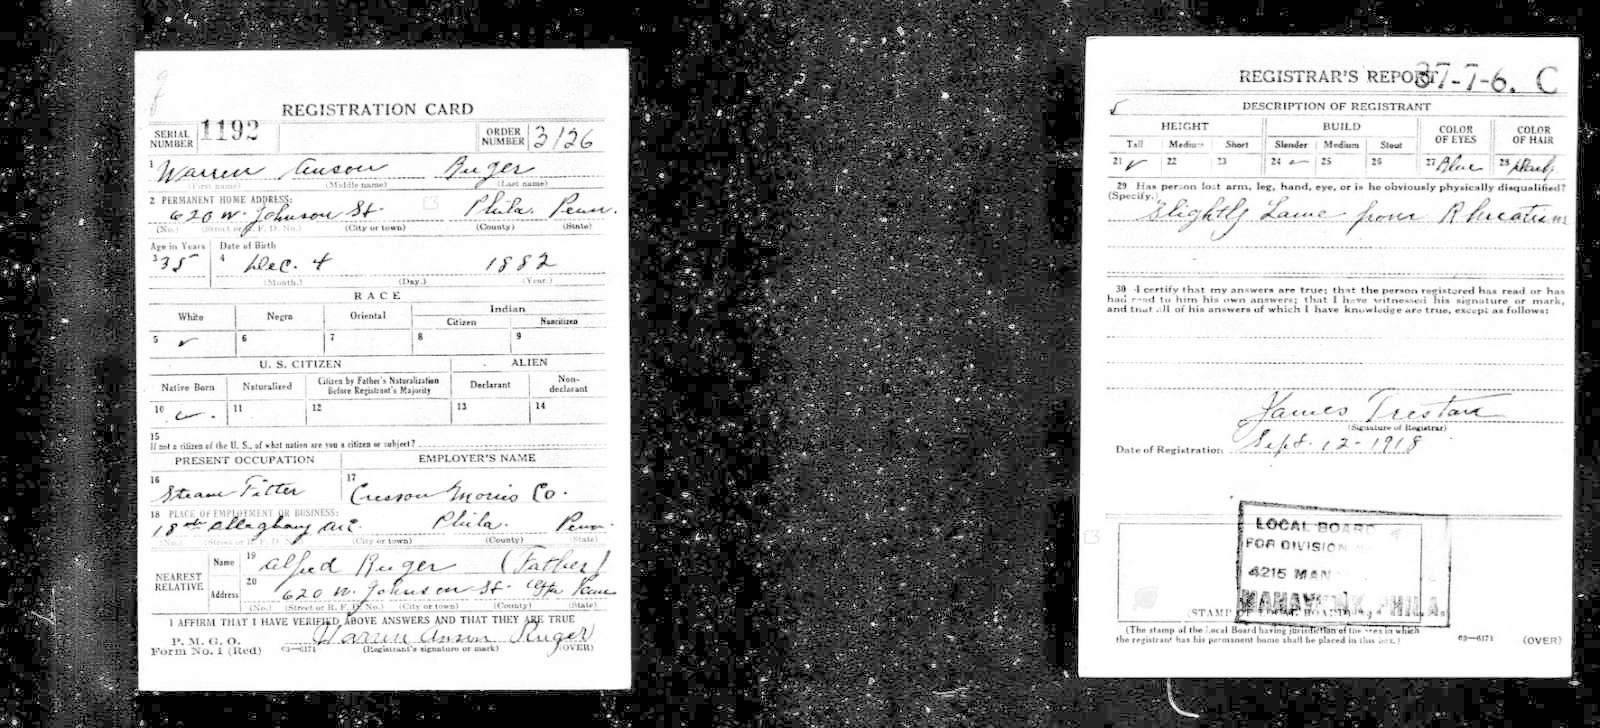 REGISTRATION CARD
SERIAL NUMBER 1192
ORDER NUMBER 3126
1 Warren Anson Ruger
(First name) (Middle name) (Last name)
2 PERMANENT HOME ADDRESS:
620 W. Johnson St. Phila. Penn.
(No.) (Street or R. F. D. No.) (City or town) (County) (State)
Age in Years Date of Birth
3 35 4 Dec. 4 1882
(Month.) (Day.) (Year.)
RACE
White Negro Oriental Indian
Citizen Noncitizen
5 ✓ 6 7 8 9
U. S. CITIZEN ALIEN
Native Born Naturalized Citizen by Father's Naturalization Before Registrant's Majority Declarant Non-declarant
10 ✓ 11 12 13 14
15
If not a citizen of the U. S., of what nation are you a citizen or subject?
PRESENT OCCUPATION EMPLOYER'S NAME
16 Steam Fitter 17 Cresson Morris Co.
18 PLACE OF EMPLOYMENT OR BUSINESS:
18th Alleghany Ave. Phila. Penn.
(No.) (Street or R. F. D. No.) (City or town) (County) (State)
NEAREST RELATIVE
Name 19 Alfred Ruger (Father)
Address 20 620 W. Johnson St.
(No.) (Street or R. F. D. No.) (City or town) (County) (State)
I AFFIRM THAT I HAVE VERIFIED ABOVE ANSWERS AND THAT THEY ARE TRUE
P. M. G. O.
Form No. 1 (Red) 03—6171
Warren Anson Ruger
(Registrant's signature or mark) (OVER)
REGISTRAR'S REPORT 37-7-6. C
5
DESCRIPTION OF REGISTRANT
HEIGHT BUILD COLOR OF EYES COLOR OF HAIR
Tall Medium Short Slender Medium Stout
21 ✓ 22 23 24 ✓ 25 26 27 Blue 28 Dark
29 Has person lost arm, leg, hand, eye, or is he obviously physically disqualified?
(Specify.) Slightly Lame from Rheumatism
30 I certify that my answers are true; that the person registered has read or has
had read to him his own answers; that I have witnessed his signature or mark,
and that all of his answers of which I have knowledge are true, except as follows:
James
(Signature of Registrar)
Date of Registration Sept. 12-1918
LOCAL BOARD
FOR DIVISION
4215 MAN
MANAYUNK, PHILA.
(STAMP OF LOCAL BOARD)
(The stamp of the Local Board having jurisdiction of the area in which
the registrant has his permanent home shall be placed in this box.)
03—6171 (OVER)